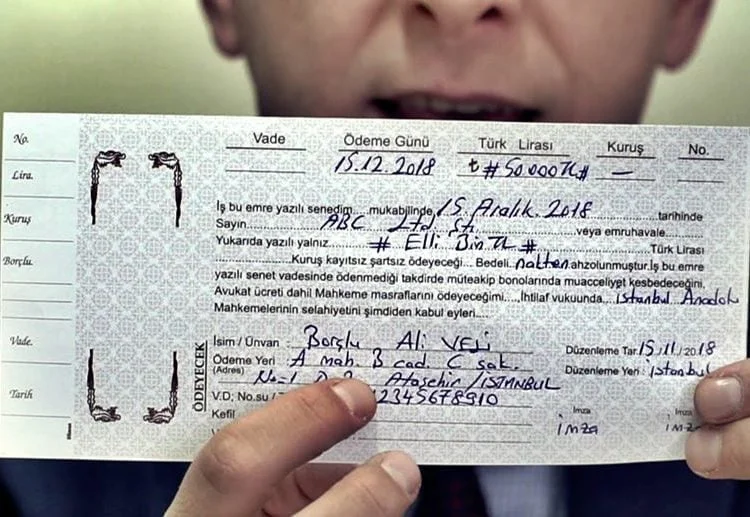 No.
Lira.
Kuruş
Borçlu.
Vade.
Tarih
Vade Ödeme Günü Türk Lirası Kuruş No.
15.12.2018 ₺ #50.000TL# —
İş bu emre yazılı senedim.....mukabilinde 15. Aralık. 2018 tarihinde
Sayın ABC Ltd Şti veya emruhavale
Yukarıda yazılı yalnız # Elli Bin TL # Türk Lirası
Kuruş kayıtsız şartsız ödeyeceği... Bedeli nakten ahzolunmuştur.İş bu emre
yazılı senet vadesinde ödenmediği takdirde müteakip bonolarında muacceliyet kesbedeceğini,
Avukat ücreti dahil Mahkeme masraflarını ödeyeceğimi....İhtilaf vukuunda istanbul Anadolu
Mahkemelerinin selahiyetini şimdiden kabul eyleri....
ÖDEYECEK
İsim / Ünvan Borçlu Ali VELİ Düzenleme Tar. 15/11/2018
Ödeme Yeri A mah. B cad. C sok. Düzenleme Yeri : istanbul
(Adres) No=1 Ataşehir/İSTANBUL
V.D; No.su 12345678910
Kefil
İmza İmza
imza imza